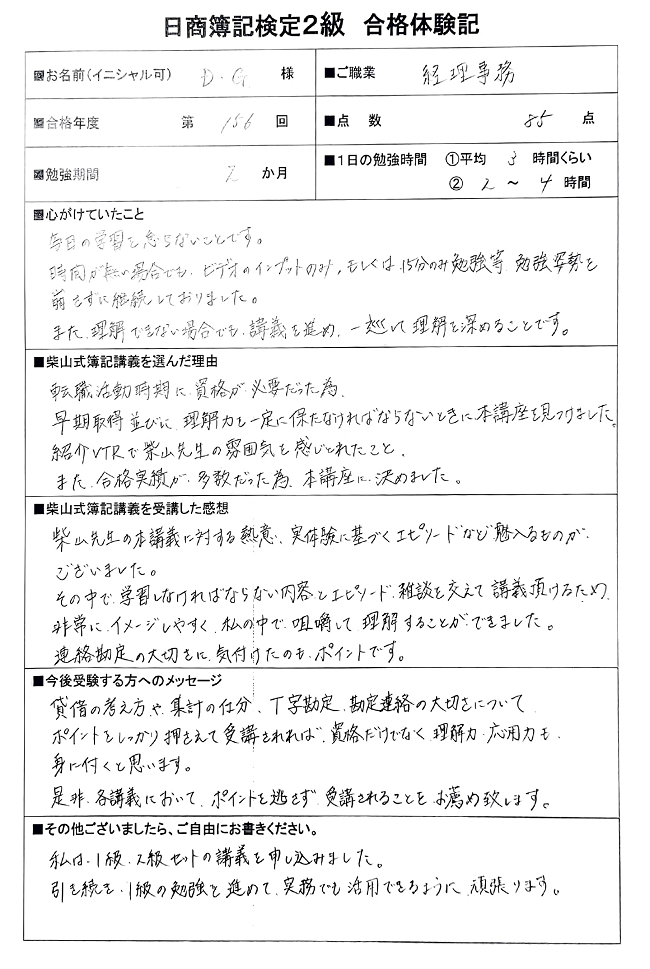 日商簿記検定2級 合格体験記
■お名前(イニシャル可) D・G 様
■ご職業 経理事務
■合格年度 第 156 回
■点 数 85 点
■勉強期間 2 か月
■1日の勉強時間 ①平均 3 時間くらい
② 2 ~ 4 時間
■心がけていたこと
毎日の学習を怠らないことです。
時間が無い場合でも、ビデオのインプットのみ、もしくは、15分のみ勉強等、勉強姿勢を
崩さずに継続しておりました。
また、理解できない場合でも、講義を進め、一巡して理解を深めることです。
■柴山式簿記講義を選んだ理由
転職活動時期に、資格が必要だった為、
早期取得並びに、理解力を一定に保たなければならないときに本講座を見つけました。
紹介VTRで柴山先生の雰囲気を感じとれたこと、
また、合格実績が、多数だった為、本講座に決めました。
■柴山式簿記講義を受講した感想
柴山先生の本講義に対する熱意、実体験に基づくエピソードなど魅入るものが、
ございました。
その中で、学習しなければならない内容とエピソード、雑談を交えて講義頂けるため、
非常に、イメージしやすく、私の中で、咀嚼して理解することができました。
連絡勘定の大切さに、気付けたのも、ポイントです。
■今後受験する方へのメッセージ
貸借の考え方や、集計の仕分、T字勘定、勘定連絡の大切さについて、
ポイントをしっかり押さえて受講されれば、資格だけでなく、理解力、応用力も、
身に付くと思います。
是非、各講義において、ポイントを逃さず、受講されることを、お薦め致します。
■その他ございましたら、ご自由にお書きください。
私は、1級、2級セットの講義を申し込みました。
引き続き、1級の勉強を進めて、実務でも活用できるように、頑張ります。